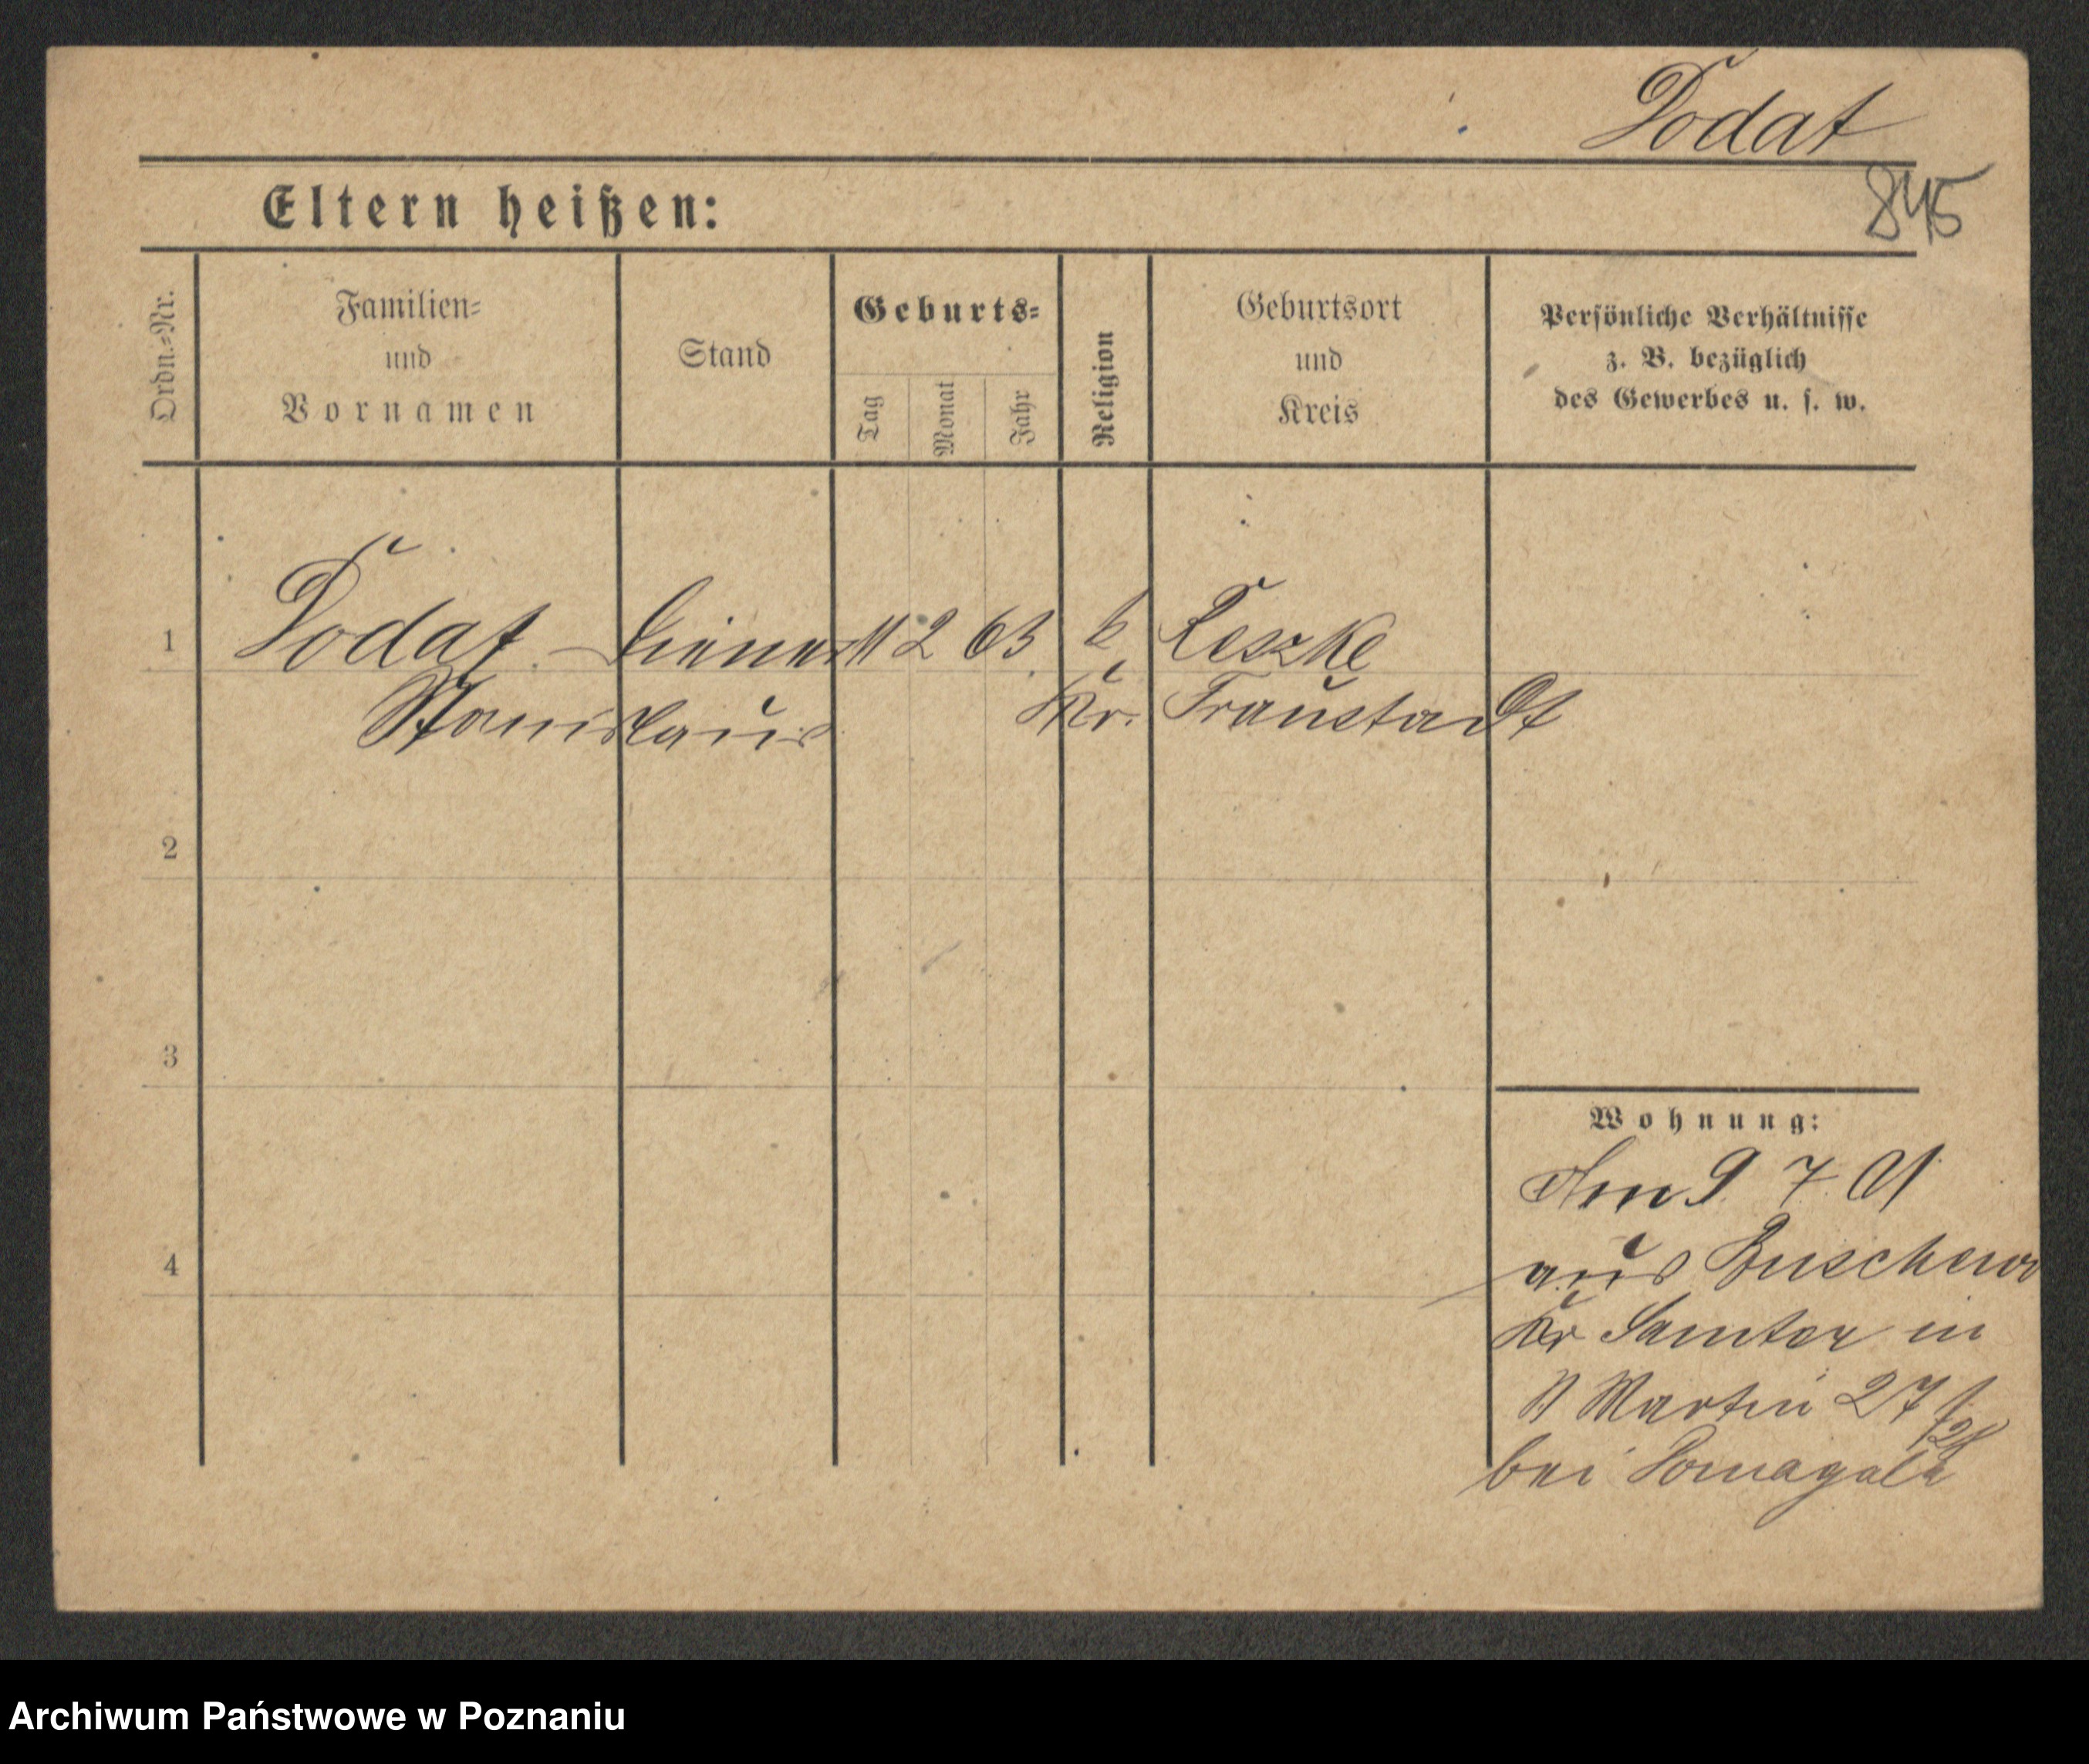 Dodat
845
Eltern heißen:
Ordn.-Nr.
Familien=
und
Vornamen
Stand
Geburts=
Tag
Monat
Jahr
Religion
Geburtsort
und
Kreis
Persönliche Verhältnisse
z. B. bezüglich
des Gewerbes u. s. w.
1
Dodat Diener 11 2 63 k Leszke
Stanislaus Kr. Fraustadt
2
3
4
Wohnung:
Am 9 7 01
aus Buschewo
Kr Samter in
St Martin 27
bei Domagala
Archiwum Państwowe w Poznaniu